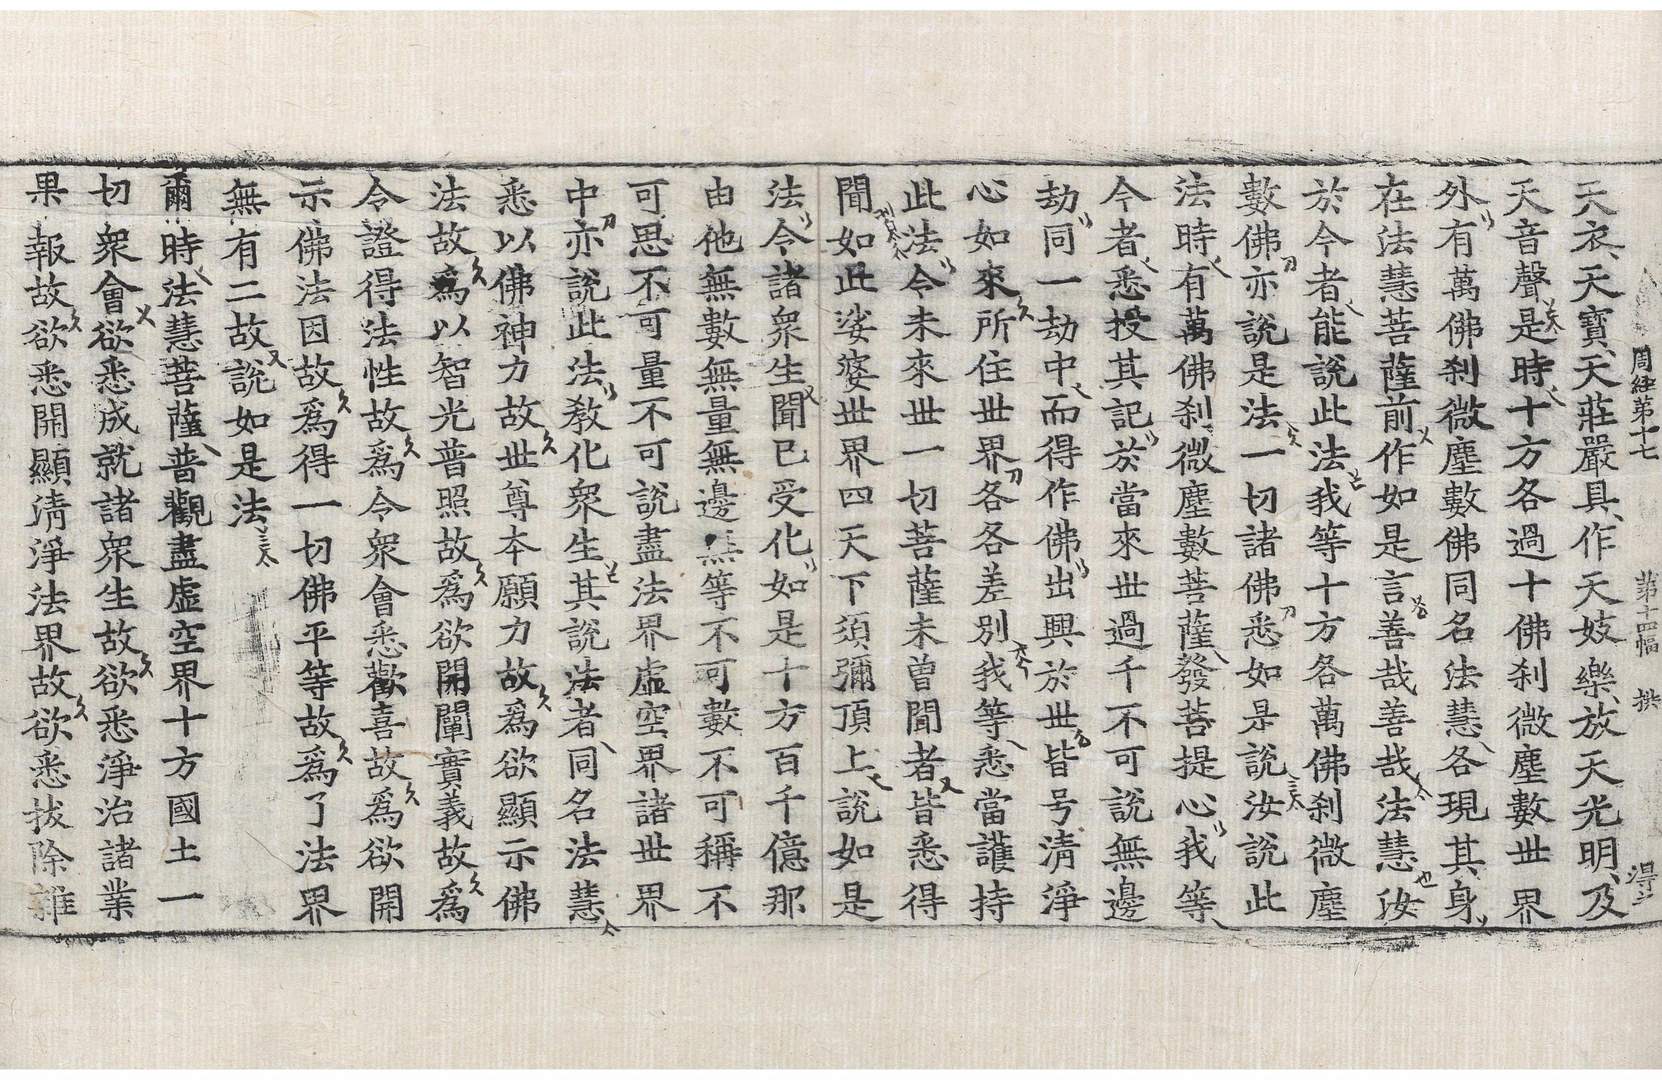 周經第十七 第十四幅
天衣天寶天莊嚴具作天妓樂放天光明及
天音聲是時十方各過十佛刹微塵數世界
外有萬佛刹微塵數佛同名法慧各現其身
在法慧菩薩前作如是言善哉善哉法慧汝
於今者能說此法我等十方各萬佛刹微塵
數佛亦說是法一切諸佛悉如是說汝說此
法時有萬佛刹微塵數菩薩發菩提心我等
今者悉授其記於當來世過千不可說無邊
劫同一劫中而得作佛出興於世皆号清淨
心如來所住世界各各差別我等悉當護持
此法令未來世一切菩薩未曾聞者皆悉得
聞如此娑婆世界四天下須彌頂上說如是
法令諸衆生聞已受化如是十方百千億那
由他無數無量無邊無等不可數不可稱不
可思不可量不可說盡法界虛空界諸世界
中亦說此法教化衆生其說法者同名法慧
悉以佛神力故世尊本願力故爲欲顯示佛
法故爲以智光普照故爲欲開闡實義故爲
令證得法性故爲令衆會悉歡喜故爲欲開
示佛法因故爲得一切佛平等故爲了法界
無有二故說如是法
爾時法慧菩薩普觀盡虛空界十方國土一
切衆會欲悉成就諸衆生故欲悉淨治諸業
果報故欲悉開顯清淨法界故欲悉拔除雜